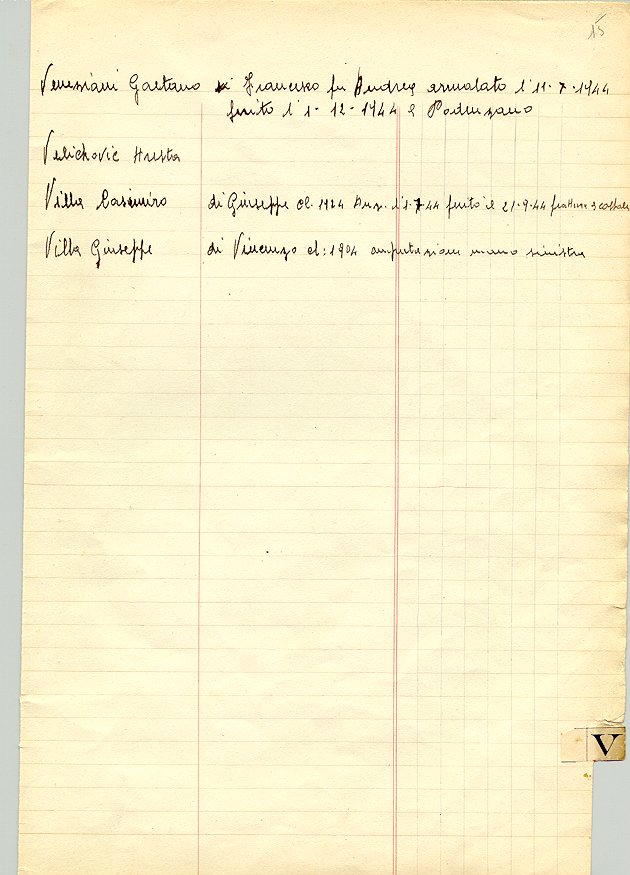 15
Veneziani Gaetano di Francesco fu Andrea arruolato l'11-7-1944
ferito l'1-12-1944 a
Velichovic
Villa Casimiro di Giuseppe cl. 1924 l'1-7-44 ferito il 21-9-44 frattura 3
Villa Giuseppe di Vincenzo cl: 1904 amputazione mano sinistra
V